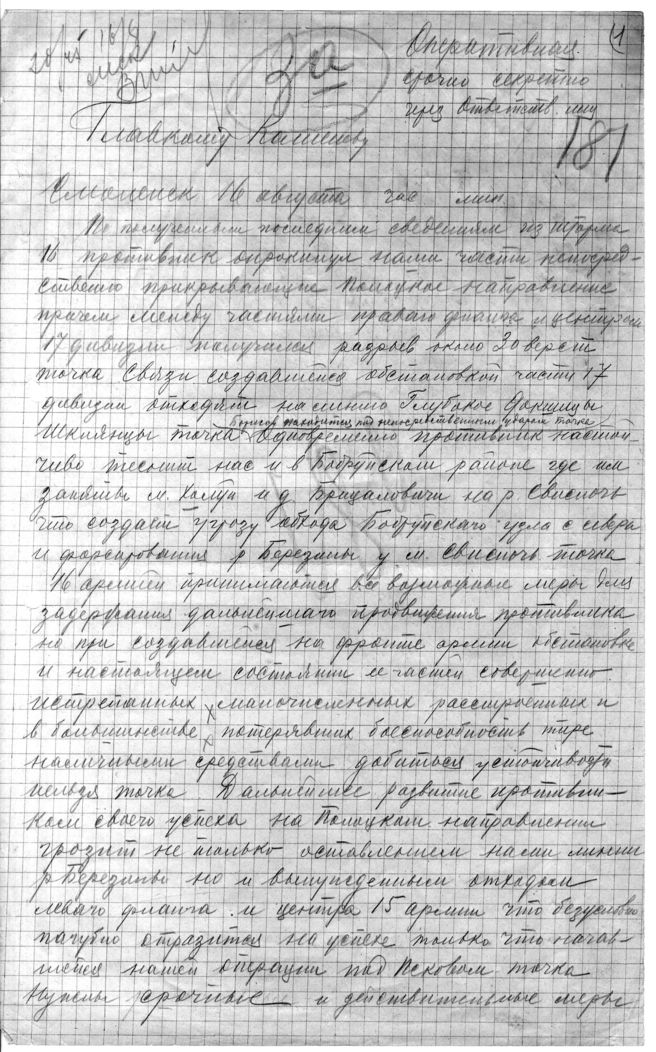 Оперативная.
срочно секретно
через ответств. лиц
1
За
181
Главкому Каменеву
Смоленск 16 августа час мин.
По полученным последним сведениям из штарма
16 противник опрокинул наши части непосред-
ственно прикрывающие Полоцкое направление
причем между частями праваго фланга и центром
17 дивизии получился разрыв около 30 верст
точка Связи создавшейся обстановкой части 17
дивизии отходят на линию Глубокое Докшицы
Борисов находится под непосредственным ударом точка
Шклянцы точка Одновременно противник настой-
чиво теснит нас и в Бобруйском районе где им
заняты м. Холуи и д. Брицаловичи на р. Свислочь
что создает угрозу обхода Бобруйскаго узла с севера
и форсирования р Березины у м. Свислочь точка
16 армией принимаются все возможные меры для
задержания дальнейшаго продвижения противника
но при создавшейся на фронте армии обстановке
и настоящем состоянии ее частей совершенно
истрепанных малочисленных расстроенных и
в большинстве потерявших боеспособность тире
наличными средствами добиться устойчивости
нельзя точка Дальнейшее развитие противни-
ком своего успеха на Полоцком направлении
грозит не только оставлением нами линии
р Березины но и вынужденным отходом
леваго фланга и центра 15 армии что безусловно
пагубно отразится на успехе только что начав-
шейся нашей операции под Псковом точка
Нужны срочные и действительные меры